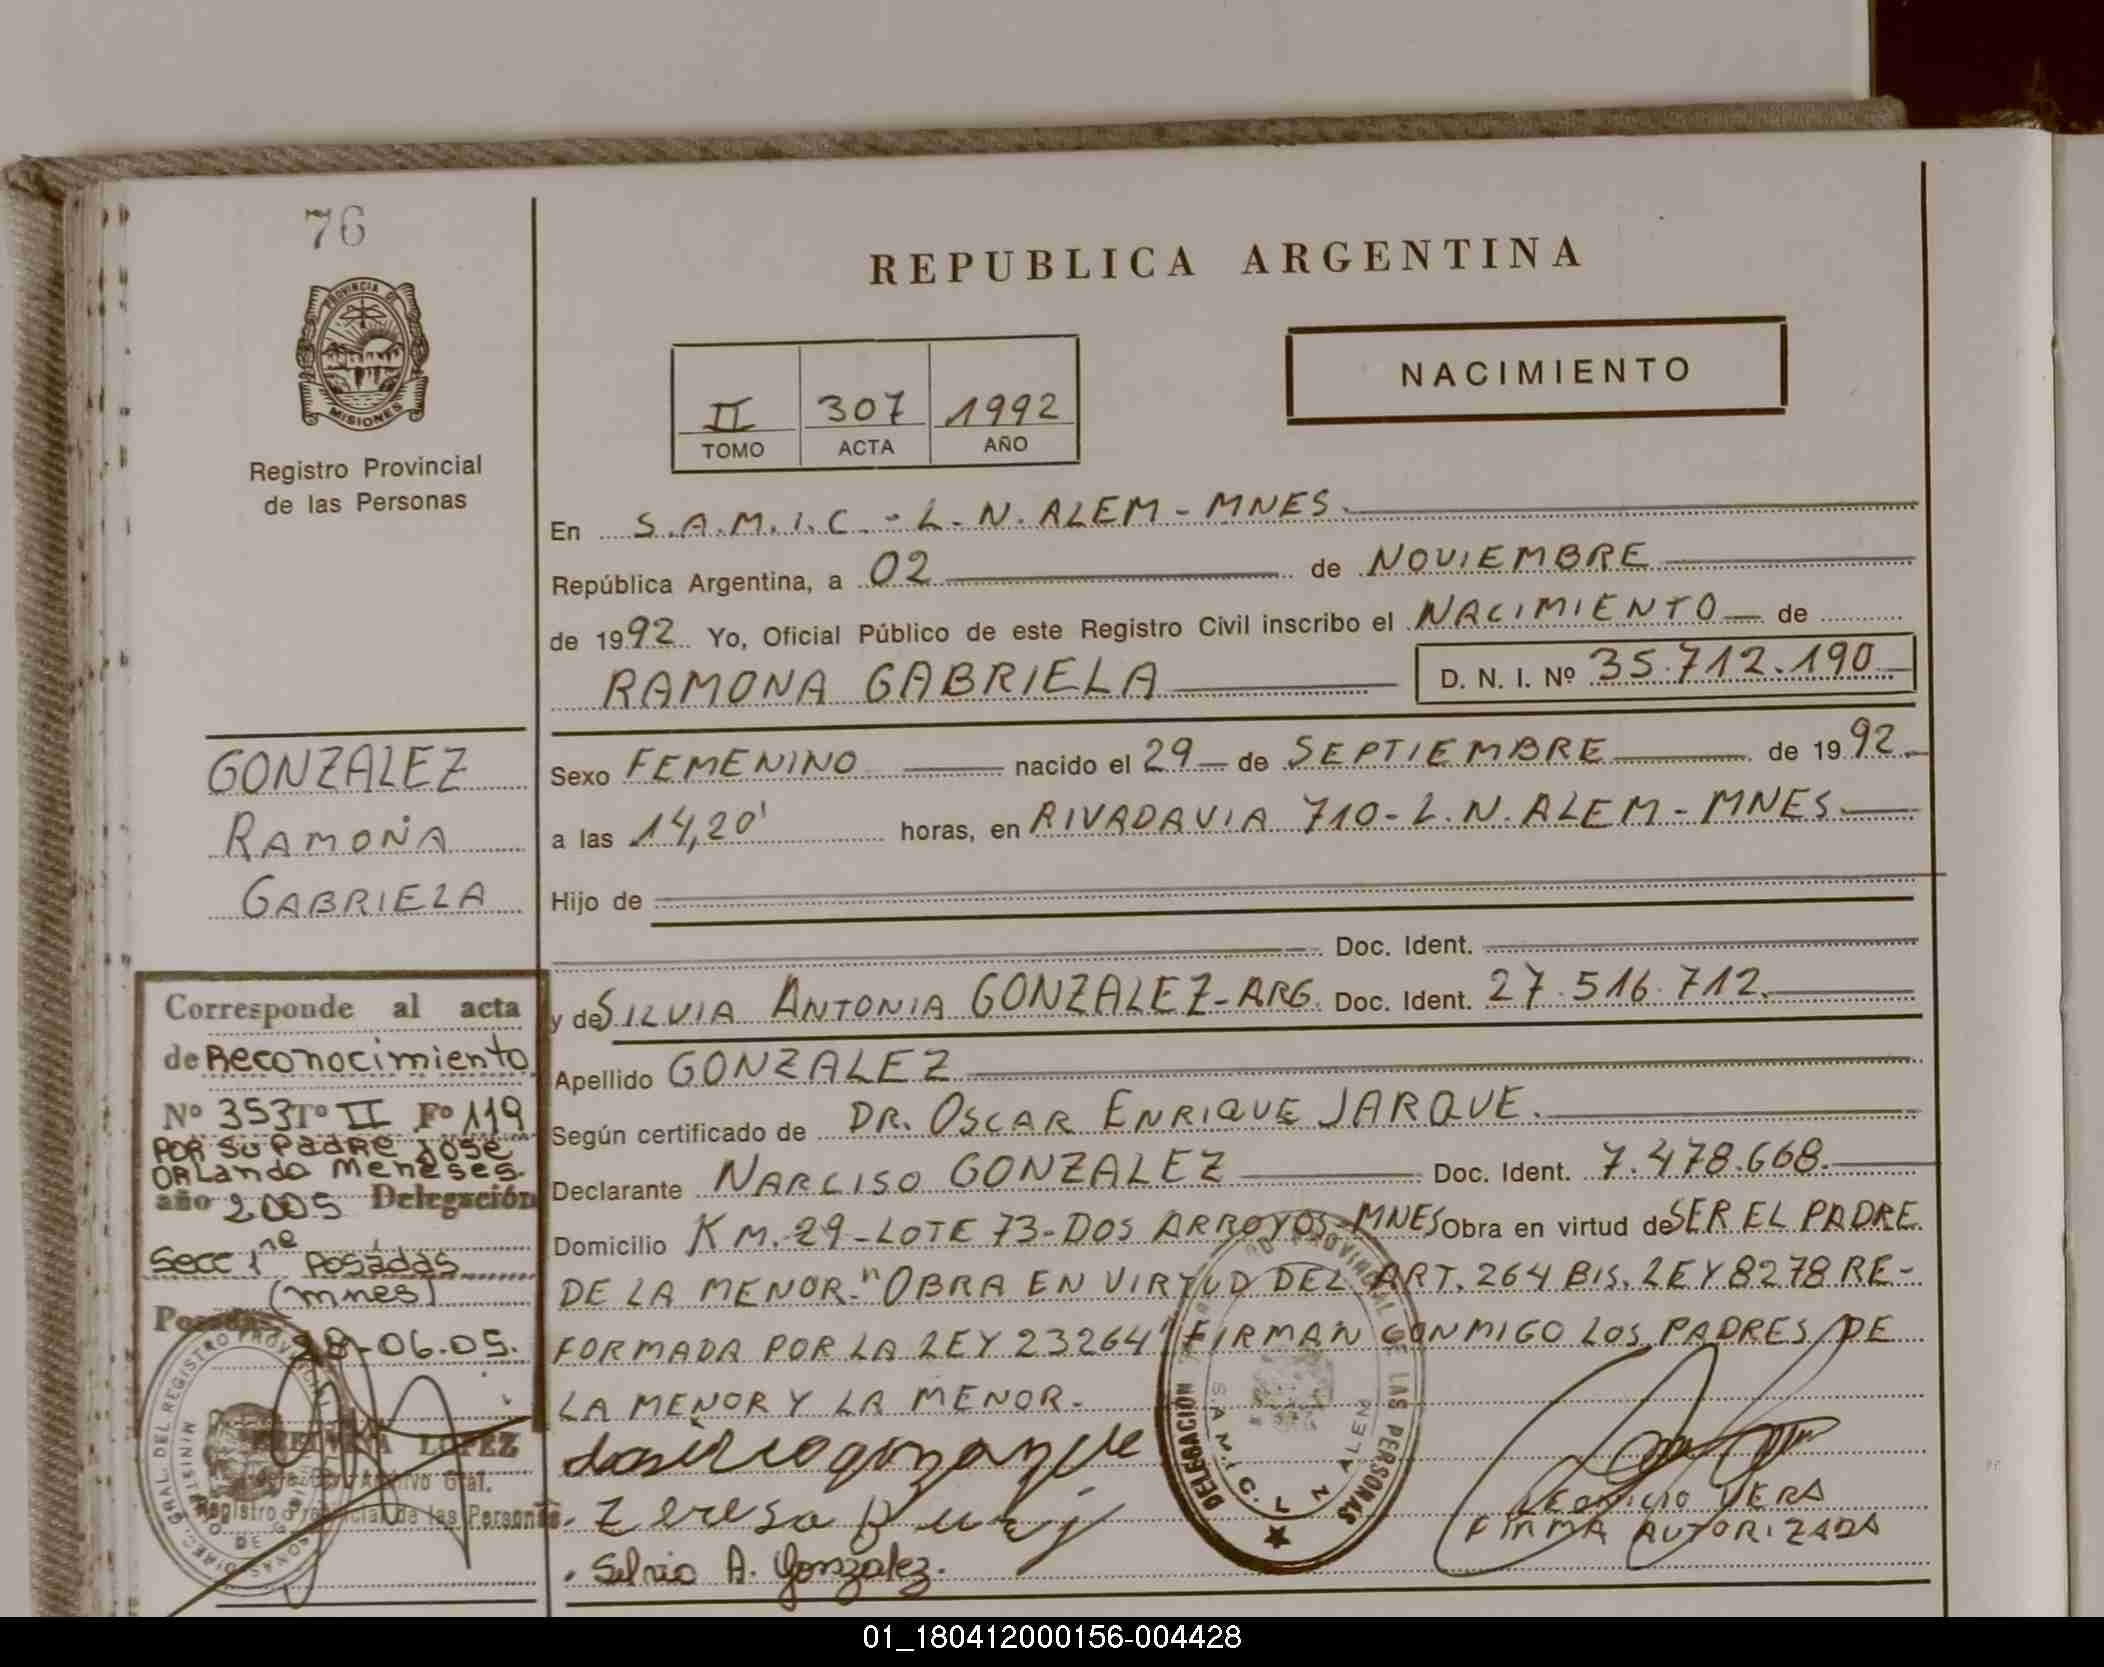 76
REPUBLICA ARGENTINA
PROVINCIA DE
MISIONES
Registro Provincial
de las Personas
II 307 1992
TOMO ACTA AÑO
NACIMIENTO
En S.A.M.I.C. - L.N. ALEM - MNES.
República Argentina, a 02 de NOVIEMBRE
de 1992 Yo, Oficial Público de este Registro Civil inscribo el NACIMIENTO de
RAMONA GABRIELA D. N. I. Nº 35.712.190
GONZALEZ
RAMONA
GABRIELA
Sexo FEMENINO nacido el 29 de SEPTIEMBRE de 1992.
a las 14,20' horas, en RIVADAVIA 710 - L.N. ALEM - MNES.
Hijo de
Doc. Ident.
y de SILVIA ANTONIA GONZALEZ - ARG. Doc. Ident. 27.516.712.
Apellido GONZALEZ
Según certificado de DR. OSCAR ENRIQUE JARQUE.
Declarante NARCISO GONZALEZ Doc. Ident. 7.478.668.
Domicilio KM. 29 - LOTE 73 - DOS ARROYOS - MNES Obra en virtud de SER EL PADRE
DE LA MENOR. "OBRA EN VIRTUD DEL ART. 264 BIS. LEY 8278 RE-
FORMADA POR LA LEY 23264" FIRMAN CONMIGO LOS PADRES DE
LA MENOR Y LA MENOR.
Teresa
Silvia A. Gonzalez.
LEONICIO VERA
FIRMA AUTORIZADA
DELEGACION
REGISTRO PROVINCIAL DE LAS PERSONAS
S.A.M.I.C. L N ALEM
Corresponde al acta
de Reconocimiento
Nº 353 Tº II Fº 119
POR SU PADRE JOSE
ORLANDO Meneses.
año 2005 Delegación
Secc 1ra Posadas
(mnes)
Posadas
28-06.05.
LOPEZ
Archivo Gral.
Registro Provincial de las Personas
DIREC. GRAL. DEL REGISTRO PROVINCIAL
MINISTERIO DE GOBIERNO
01_180412000156-004428